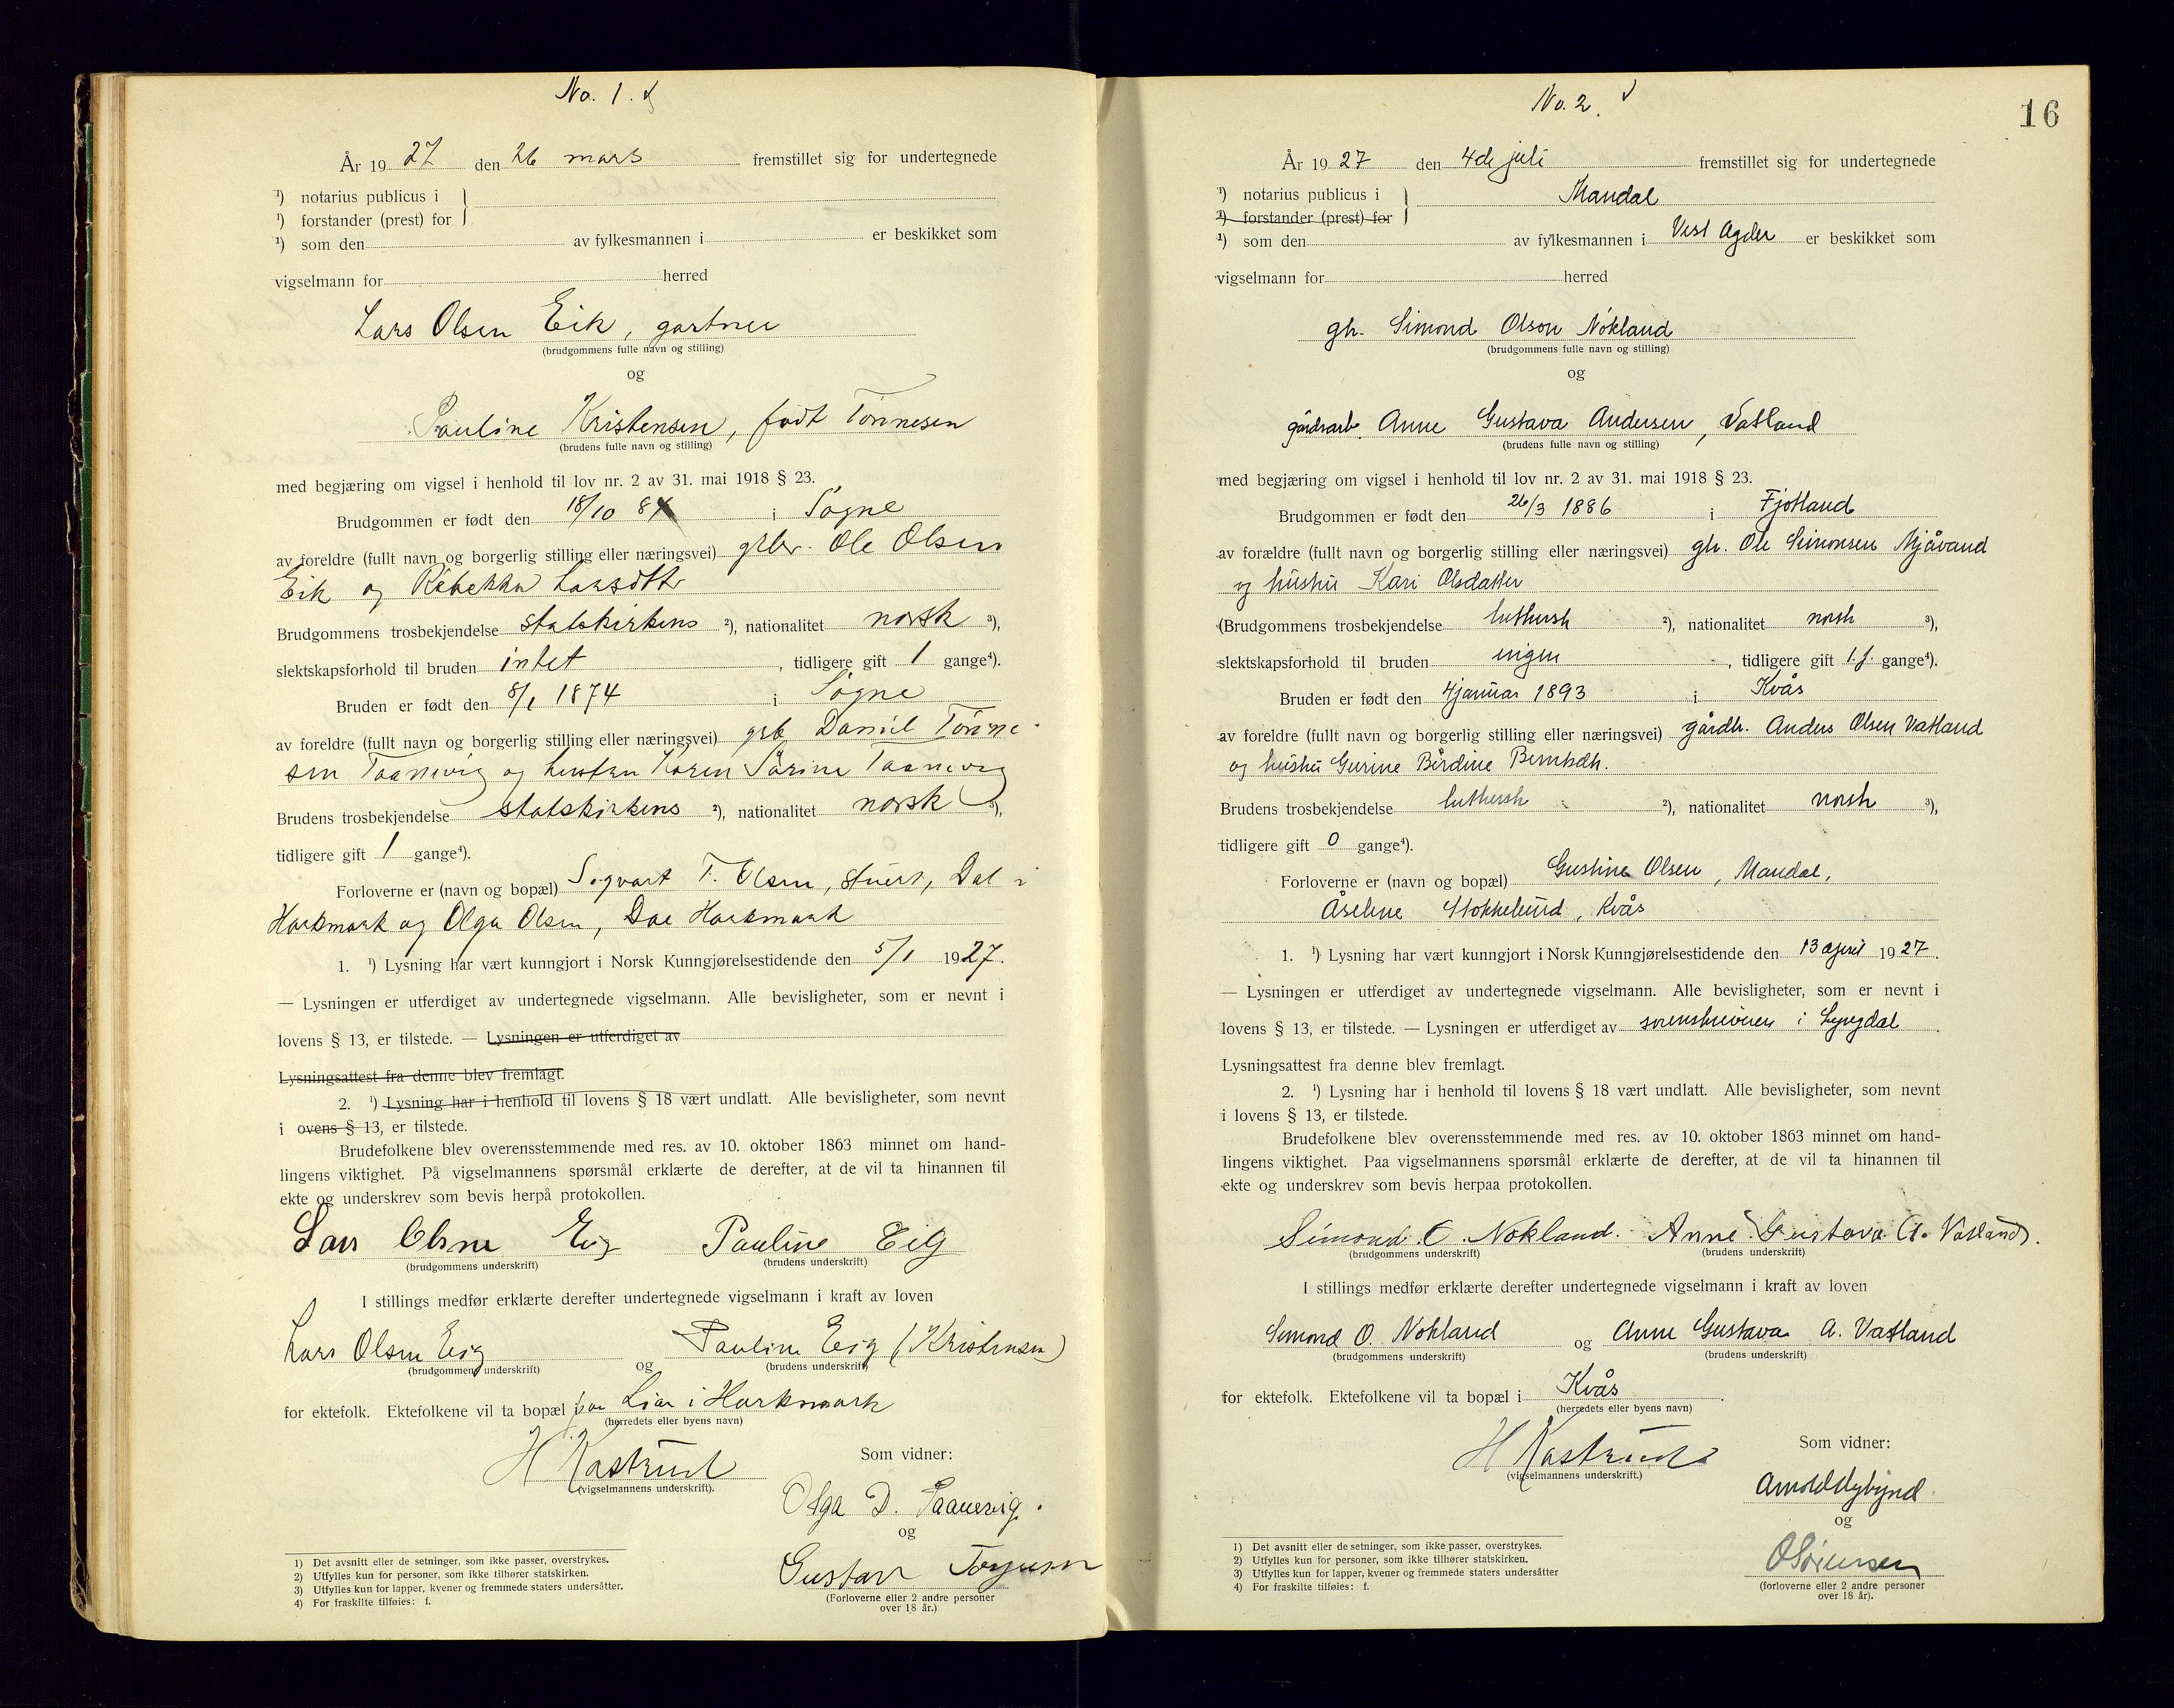 No. 1.
År 19 27 den 26 mars fremstillet sig for undertegnede
¹) notarius publicus i
¹) forstander (prest) for
¹) som den av fylkesmannen i er beskikket som
vigselmann for herred
Lars Olsen Eik, gartner
(brudgommens fulle navn og stilling)
og
Pauline Kristensen, født Tönnesen
(brudens fulle navn og stilling)
med begjæring om vigsel i henhold til lov nr. 2 av 31. mai 1918 § 23.
Brudgommen er født den 18/10 8 i Sögne
av foreldre (fullt navn og borgerlig stilling eller næringsvei) Ole Olsen
Eik og Rebekka Larsdttr
Brudgommens trosbekjendelse statskirkens ²), nationalitet norsk ³),
slektskapsforhold til bruden intet, tidligere gift 1 gange⁴).
Bruden er født den 8/1 1874 i Sögne
av foreldre (fullt navn og borgerlig stilling eller næringsvei) gsb Daniel Tönne-
sen Taanevig og hustru Karen Sörine Taanevig
Brudens trosbekjendelse statskirkens ²), nationalitet norsk ³),
tidligere gift 1 gange⁴).
Forloverne er (navn og bopæl) Sigvart T. Olsen, stuert, Dal i
Harkmark og Olga Olsen, Dal Harkmark
1. ¹) Lysning har vært kunngjort i Norsk Kunngjørelsestidende den 5/1 1927.
— Lysningen er utferdiget av undertegnede vigselmann. Alle bevisligheter, som er nevnt i
lovens § 13, er tilstede. — Lysningen er utferdiget av
Lysningsattest fra denne blev fremlagt.
2. ¹) Lysning har i henhold til lovens § 18 vært undlatt. Alle bevisligheter, som nevnt
i ovens § 13, er tilstede.
Brudefolkene blev overensstemmende med res. av 10. oktober 1863 minnet om hand-
lingens viktighet. På vigselmannens spørsmål erklærte de derefter, at de vil ta hinannen til
ekte og underskrev som bevis herpå protokollen.
Lars Olsen Eig Pauline Eig
(brudgommens underskrift) (brudens underskrift)
I stillings medfør erklærte derefter undertegnede vigselmann i kraft av loven
Lars Olsen Eig og Pauline Eig (Kristensen)
(brudgommens underskrift) (brudens underskrift)
for ektefolk. Ektefolkene vil ta bopæl paa Lian i Harkmark
(herredets eller byens navn)
H Kastrud
(vigselmannens underskrift).
Som vidner:
Olga D. Taanevig.
og
Gustav Torjusen
(Forloverne eller 2 andre personer
over 18 år.)
1) Det avsnitt eller de setninger, som ikke passer, overstrykes.
2) Utfylles kun for personer, som ikke tilhører statskirken.
3) Utfylles kun for lapper, kvener og fremmede staters undersåtter.
4) For fraskilte tilføies: f.
No. 2.
16
År 19 27 den 4de juli fremstillet sig for undertegnede
¹) notarius publicus i Mandal
¹) forstander (prest) for
¹) som den av fylkesmannen i Vest Agder er beskikket som
vigselmann for herred
gh. Simond Olson Nökland
(brudgommens fulle navn og stilling)
og
gårdsarb. Anne Gustava Andersen, Vatland
(brudens fulle navn og stilling)
med begjæring om vigsel i henhold til lov nr. 2 av 31. mai 1918 § 23.
Brudgommen er født den 26/3 1886 i Fjotland
av forældre (fullt navn og borgerlig stilling eller næringsvei) gh. Ole Simonsen Mjåvand
og hustru Kari Olsdatter
(Brudgommens trosbekjendelse luthersk ²), nationalitet norsk ³),
slektskapsforhold til bruden ingen, tidligere gift 1.f. gange⁴).
Bruden er født den 4 januar 1893 i Kvås
av foreldre (fullt navn og borgerlig stilling eller næringsvei) gårdbr. Anders Olsen Vatland
og hustru Gurine Berdine Berntsdtr.
Brudens trosbekjendelse luthersk ²), nationalitet norsk ³),
tidligere gift 0 gange⁴).
Forloverne er (navn og bopæl) Gustine Olsen, Mandal,
Åseline Stokkelund, Kvås
1. ¹) Lysning har vært kunngjort i Norsk Kunngjørelsestidende den 13 april 1927.
— Lysningen er utferdiget av undertegnede vigselmann. Alle bevisligheter, som er nevnt i
lovens § 13, er tilstede. — Lysningen er utferdiget av sorenskriveren i Lyngdal.
Lysningsattest fra denne blev fremlagt.
2. ¹) Lysning har i henhold til lovens § 18 vært undlatt. Alle bevisligheter, som nevnt
i lovens § 13, er tilstede.
Brudefolkene blev overensstemmende med res. av 10. oktober 1863 minnet om hand-
lingens viktighet. Paa vigselmannens spørsmål erklærte de derefter, at de vil ta hinannen til
ekte og underskrev som bevis herpaa protokollen.
Simond O. Nokland. Anne Gustava A. Vatland.
(brudgommens underskrift) (brudens underskrift)
I stillings medfør erklærte derefter undertegnede vigselmann i kraft av loven
Simond O. Nokland og Anne Gustava A. Vatland
(brudgommens underskrift) (brudens underskrift)
for ektefolk. Ektefolkene vil ta bopæl i Kvås.
(herredets eller byens navn)
H Kastrud
(vigselmannens underskrift.)
Som vidner:
Arnold
og
O Sörensen
(forloverne eller 2 andre personer
over 18 år).
1) Det avsnitt eller de setninger, som ikke passer, overstrykes.
2) Utfylles kun for personer, som ikke tilhører statskirken.
3) Utfylles kun for lapper, kvener og fremmede staters undersåtter
4) For fraskilte tilføies: f.